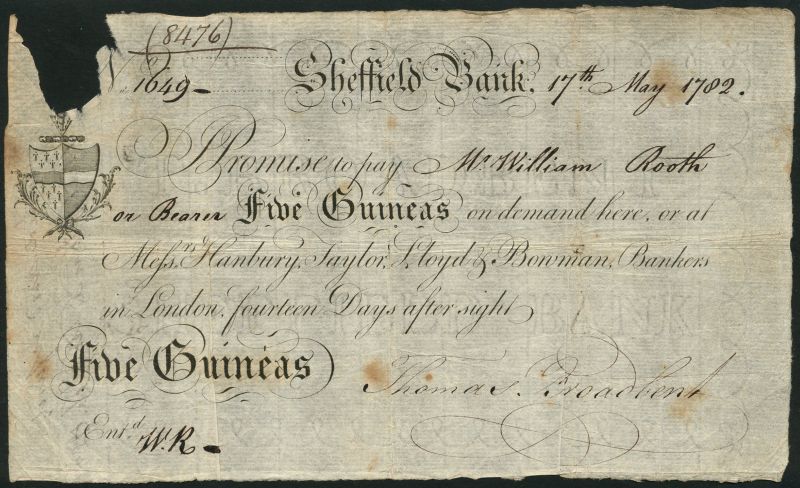 (8476)
N 1649 - Sheffield Bank, 17th May 1782.
I Promise to pay Mr William Rooth
or Bearer Five Guineas on demand here, or at
Messrs Hanbury, Taylor, Lloyd & Bowman, Bankers
in London, fourteen Days after sight
Five Guineas
Thomas Broadbent
Entd W.R -